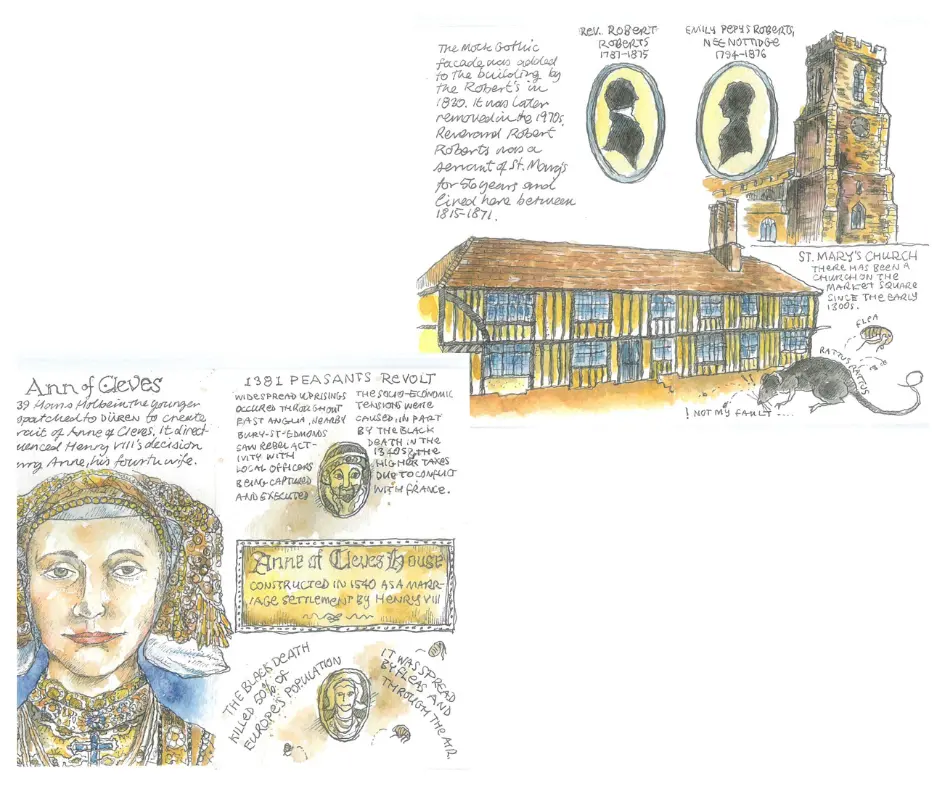 The Mock Gothic
facade was added
to the building by
the Robert's in
1830. It was later
removed in the 1970s.
Reverand Robert
Roberts was a
servant of St. Mary's
for 56 years and
lived here between
1815-1871.
REV. ROBERT
ROBERTS
1787-1875
EMILY PEPYS ROBERTS,
NEE NOTTIDGE
1794-1876
ST. MARY'S CHURCH
THERE HAS BEEN A
CHURCH ON THE
MARKET SQUARE
SINCE THE EARLY
1300s.
FLEA
RATTUS RATTUS
! NOT MY FAULT ....
Ann of Cleves
39 Hans Holbein the younger
spatched to DÜREN to create
rait of Anne of Cleves. It direct-
uenced Henry VIII's decision
rry Anne, his fourth wife.
1381 PEASANTS REVOLT
WIDESPREAD UPRISINGS
OCCURED THROUGHOUT
EAST ANGLIA, NEARBY
BURY-ST-EDMUNDS
SAW REBEL ACT-
IVITY WITH
LOCAL OFFICERS
BEING CAPTURED
AND EXECUTED
THE SOCIO-ECONOMIC
TENSIONS WERE
CAUSED IN PART
BY THE BLACK
DEATH IN THE
1340S, THE
HIGHER TAXES
DUE TO CONFLICT
WITH FRANCE.
Anne of Cleves House
CONSTRUCTED IN 1540 AS A MARR-
IAGE SETTLEMENT BY HENRY VIII
THE BLACK DEATH
KILLED 50% OF
EUROPES POPULATION
IT WAS SPREAD
BY FLEAS AND
THROUGH THE AIR